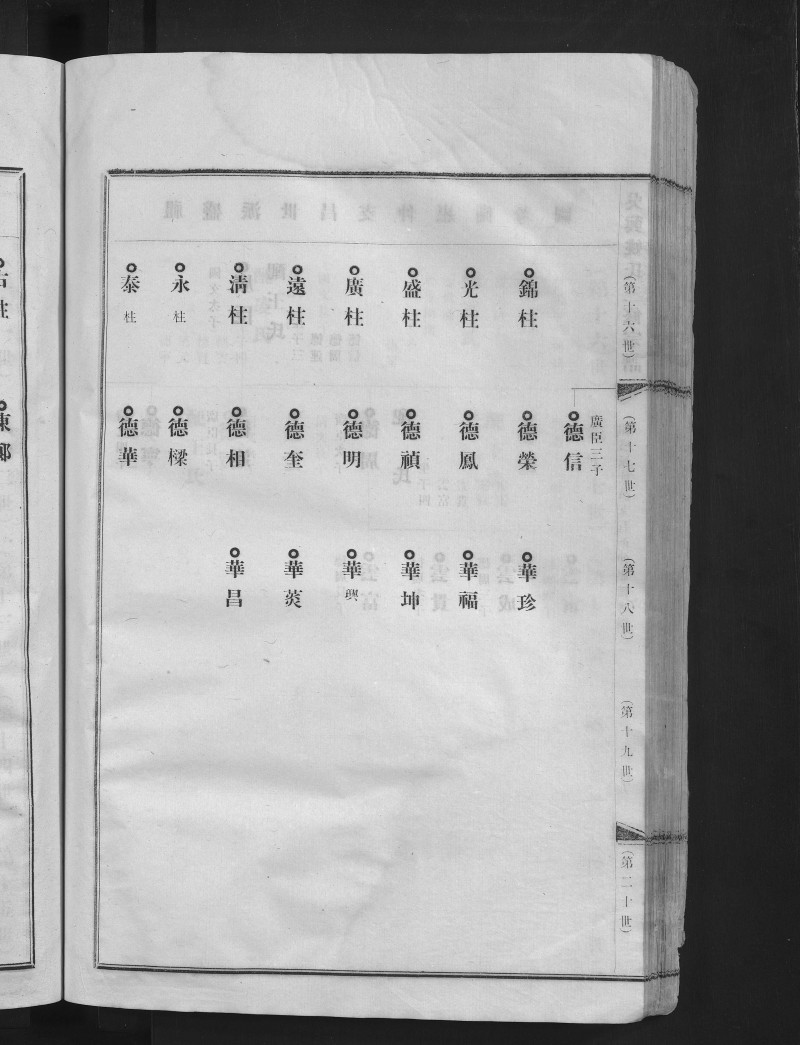 (第十六世)
(第十七世)
(第十八世)
(第十九世)
(第二十世)
廣臣三子
德信
錦柱
德榮
華珍
光柱
德鳳
華福
盛柱
德禎
華坤
廣柱
德明
華興
遠柱
德奎
華炎
清柱
德相
華昌
永柱
德樑
泰柱
德華